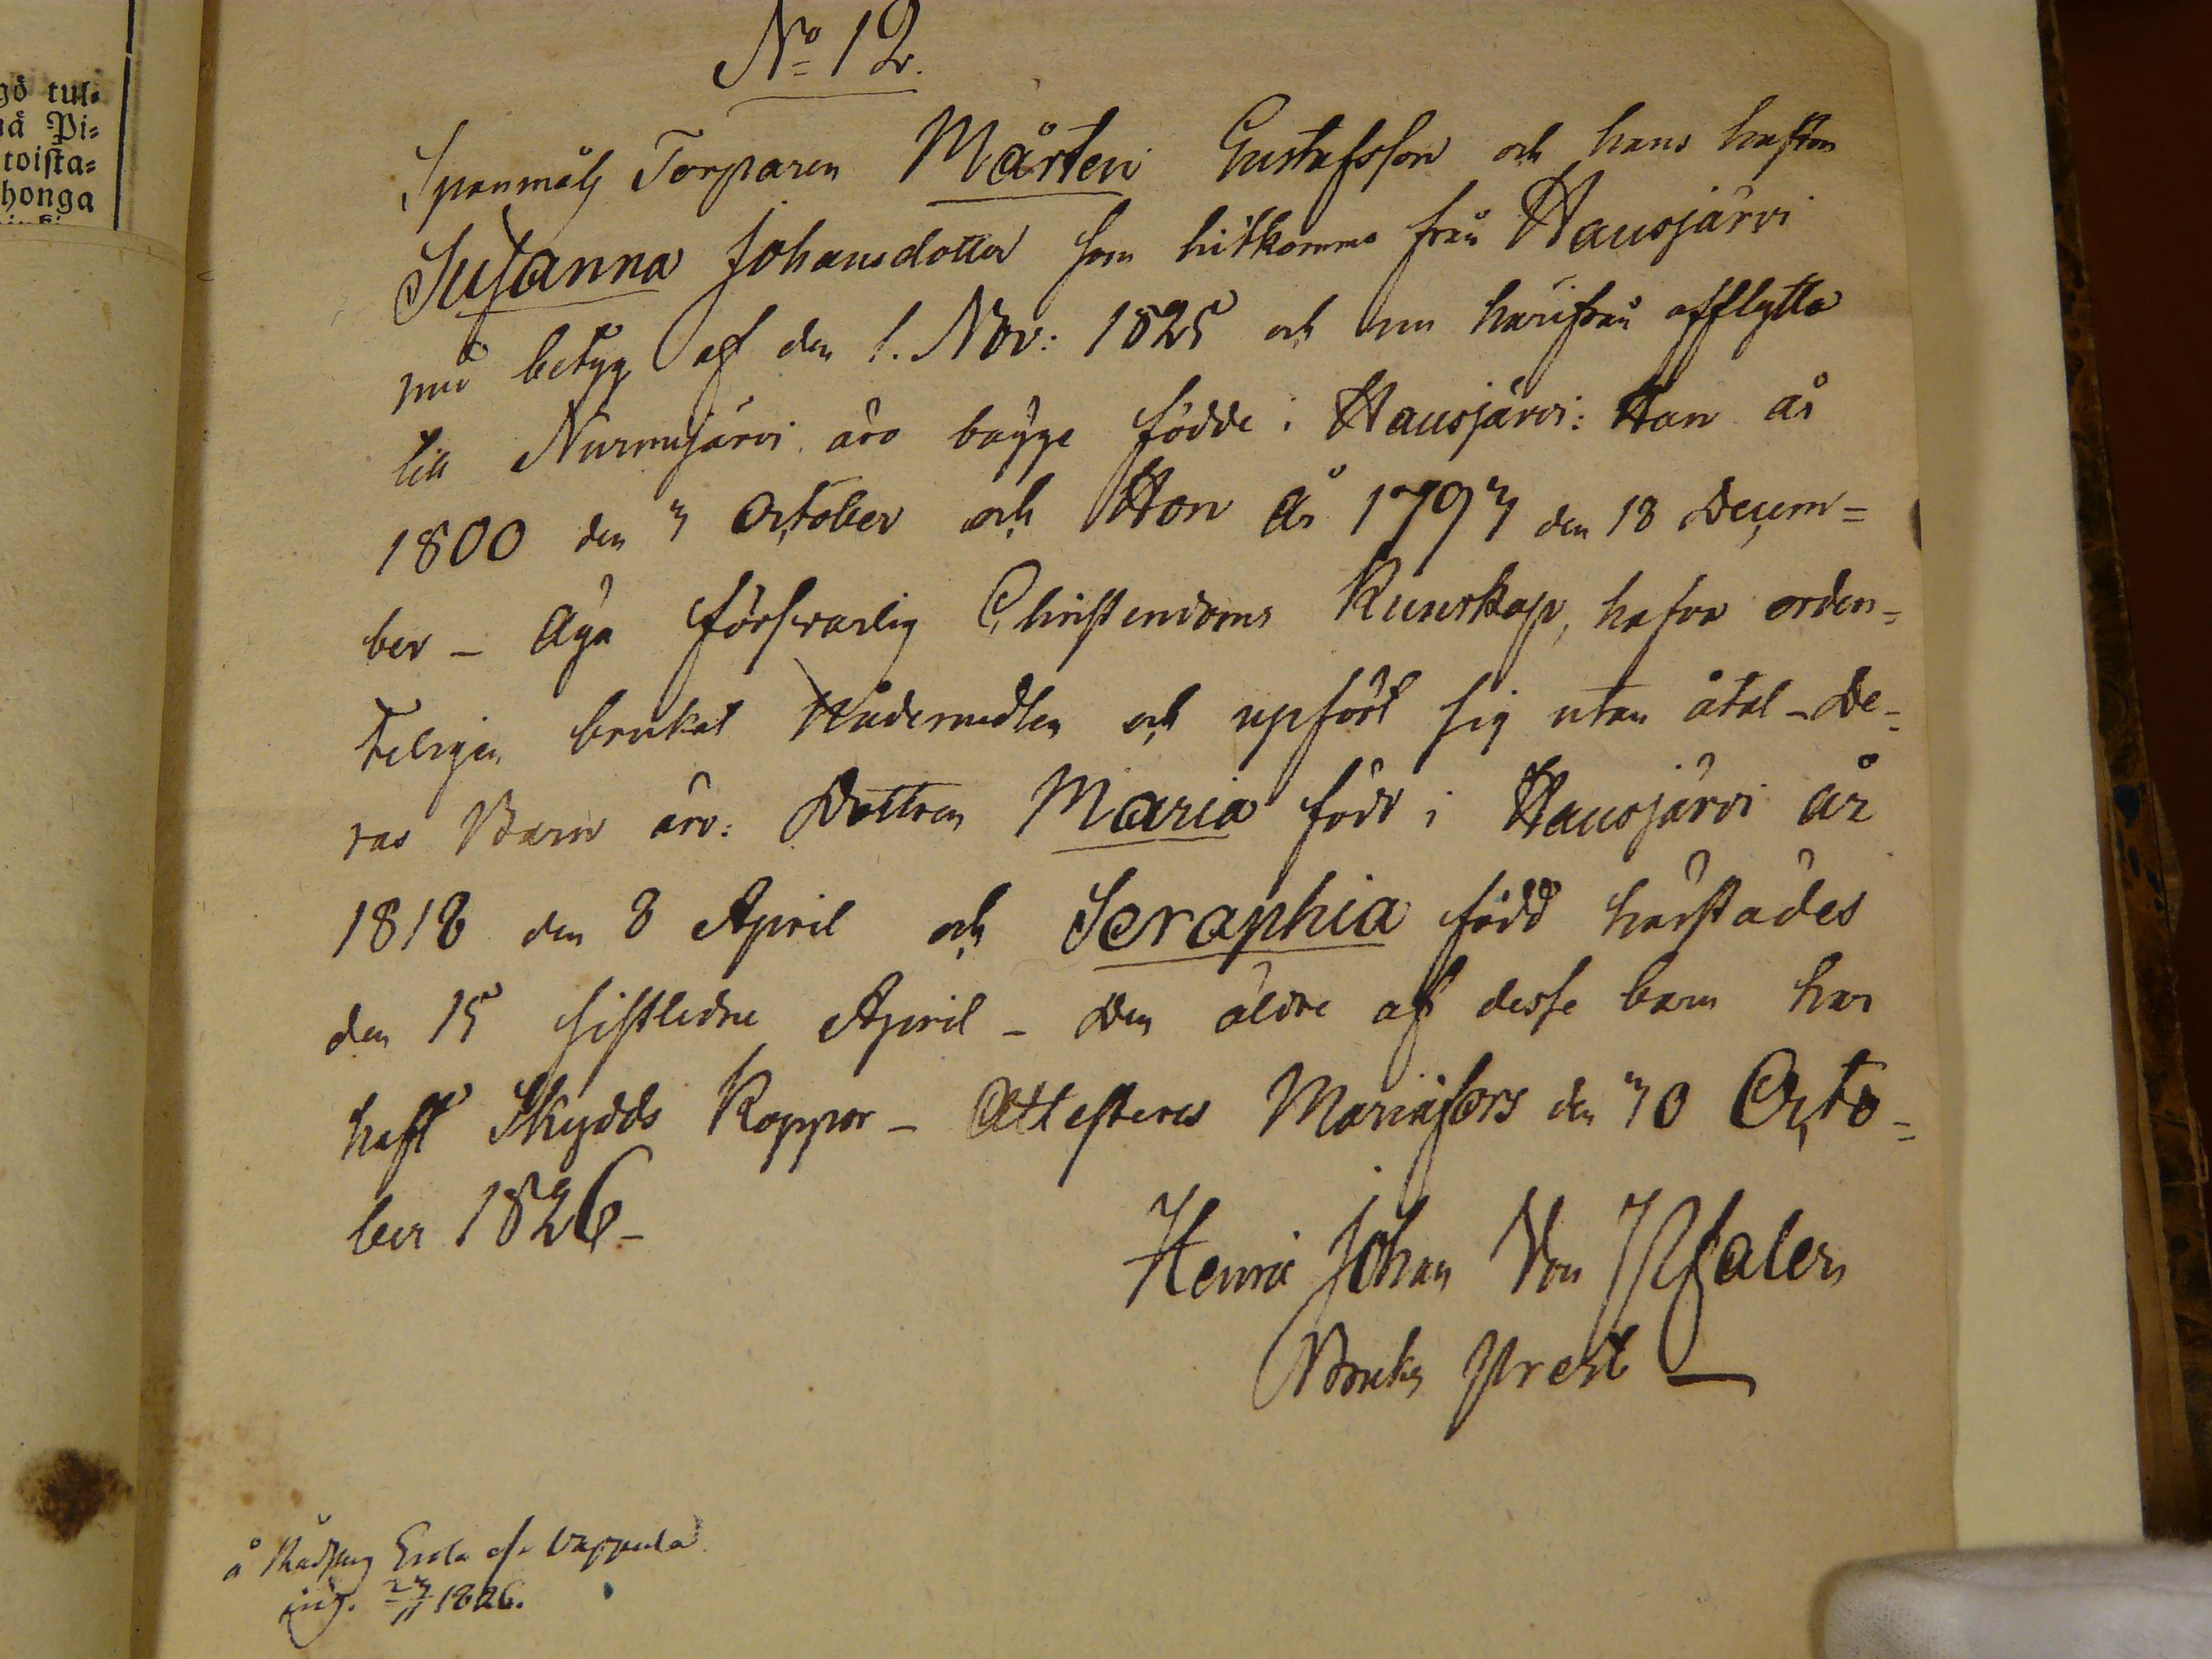 gö tul=
nå Pi=
toista=
honga
No 12.
Torparen Mårten Gustafsson och hans hustru
Susanna Johansdotter som hitkommo från Hausjärvi
med betyg af den 1. Nov: 1825 och nu härifrån afflytta
till Nurmijärvi äro bägge födde i Hausjärvi: Han år
1800 den 7 October och Hon år 1797 den 18 Decem=
ber – Äga försvarlig Christendoms Kunskap, hafva orden=
teligen brukat Nådemedlen och upfört sig utan åtal – De=
ras Barn äro: Dottren Maria född i Hausjärvi år
1818 den 8 April och Seraphia född härstädes
den 15 sistledne April – Den äldre af desse barn har
haft Skydds Koppor – Attesteras Mariefors den 30 Octo=
ber 1826 –
Henric Johan Von Pfaler
Bruks Prest
å Erola
1826.